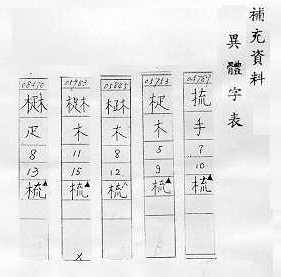 補充資料
異體字表
05769
手
7
10
梳▲
05753
木
5
9
梳▲
05885
木
8
12
梳▲
05983
木
11
15
梳▲
X
08470
疋
8
13
梳▲